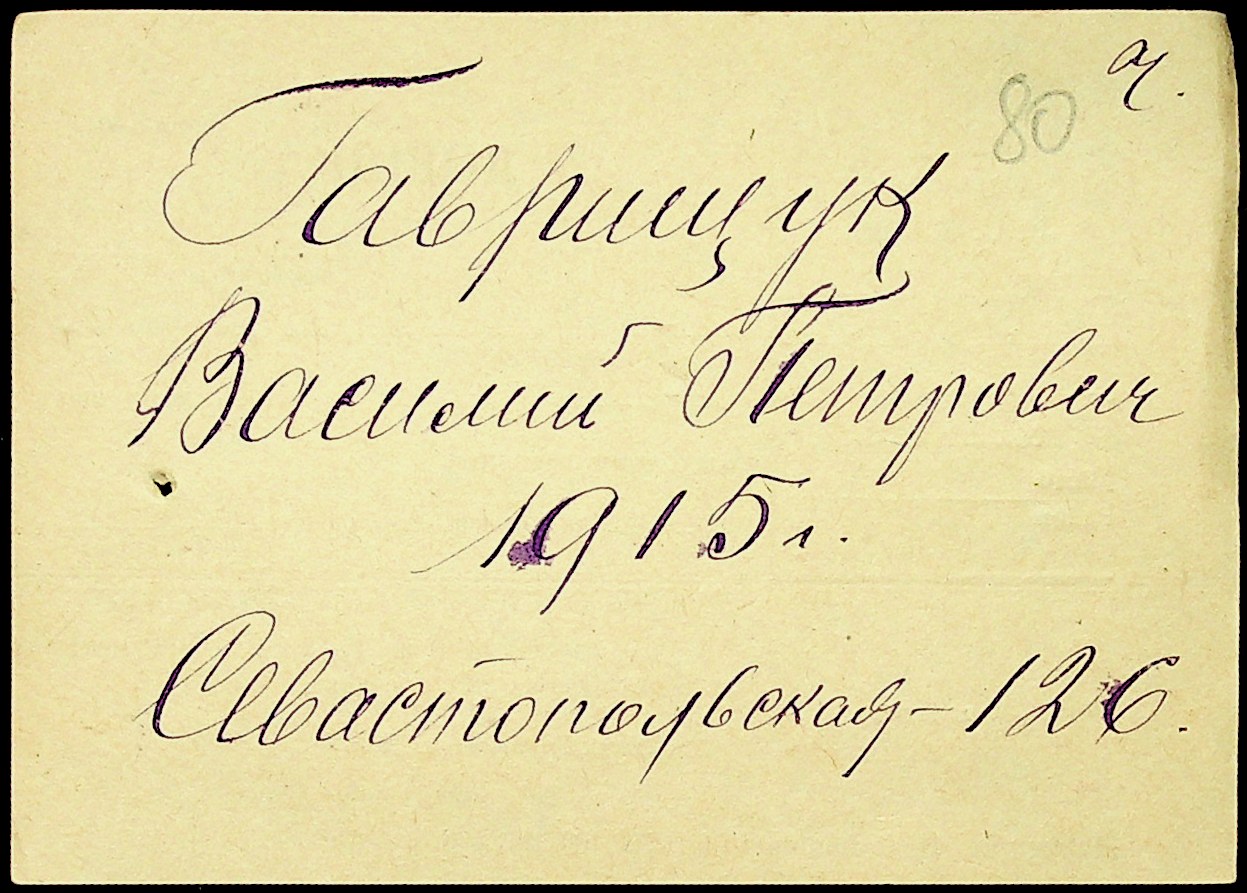 80
Гаврищук
Василий Петрович
1915 г.
Севастопольская - 126.